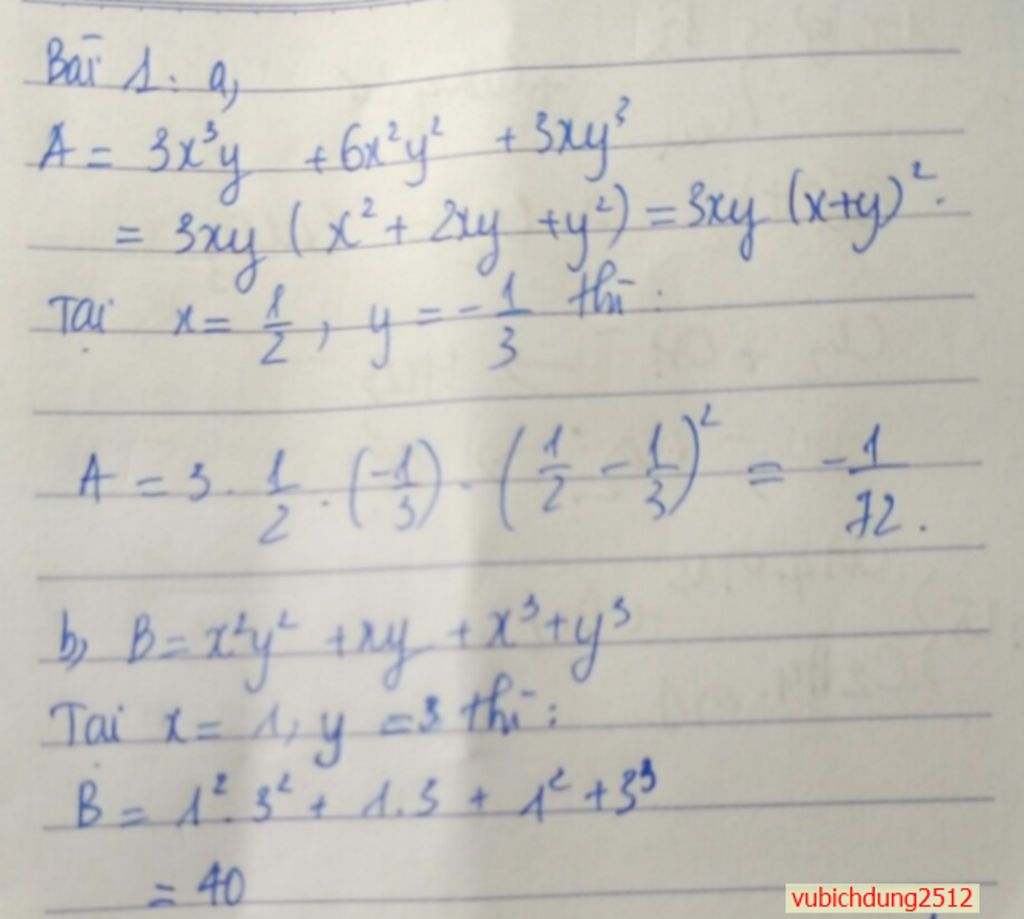 Bài 1: a,
A = 3x³y + 6x²y² + 3xy³
= 3xy (x² + 2xy + y²) = 3xy (x+y)².
Tại x = 1/2, y = -1/3 thì:
A = 3 . 1/2 . (-1/3) . (1/2 - 1/3)² = -1/72.
b, B = x²y² + xy + x³ + y³
Tại x = 1, y = 3 thì:
B = 1² . 3² + 1.3 + 1² + 3³
= 40
vubichdung2512